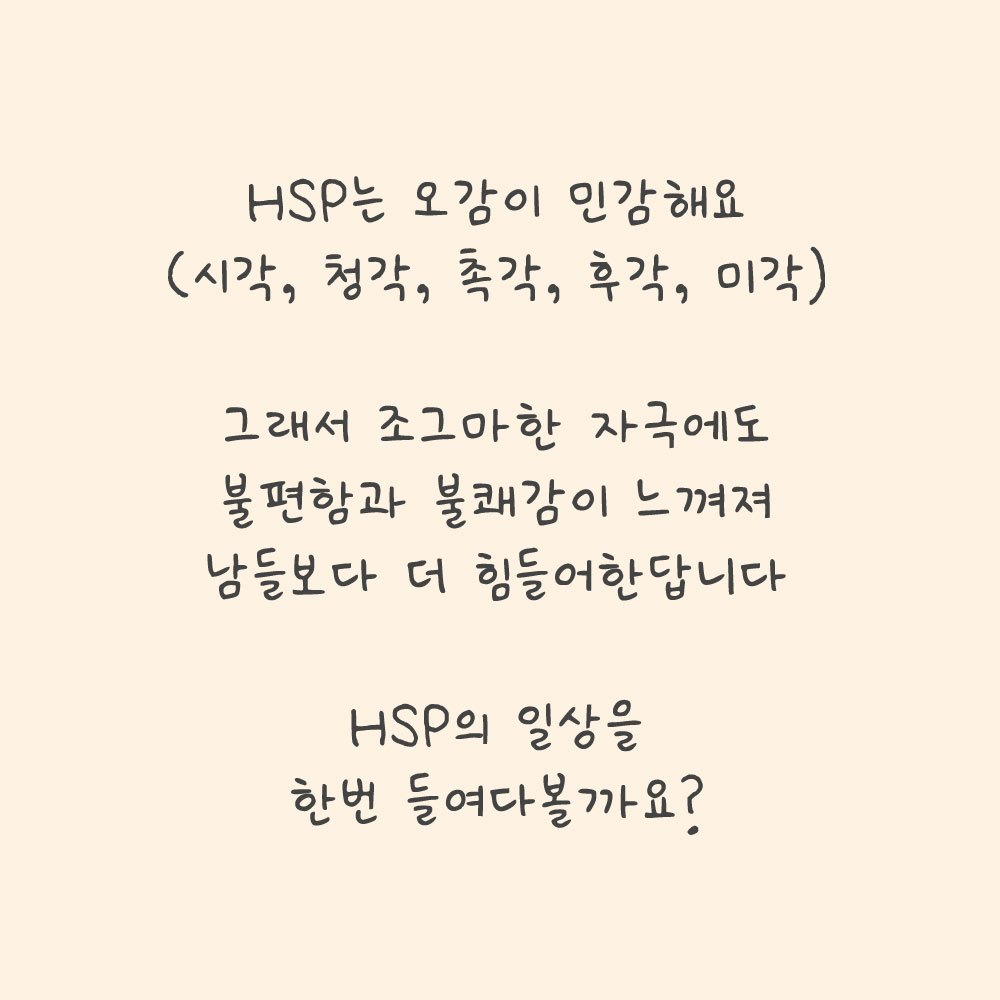 HSP는 오감이 민감해요
(시각, 청각, 촉각, 후각, 미각)
그래서 조그마한 자극에도
불편함과 불쾌감이 느껴져
남들보다 더 힘들어한답니다
HSP의 일상을
한번 들여다볼까요?